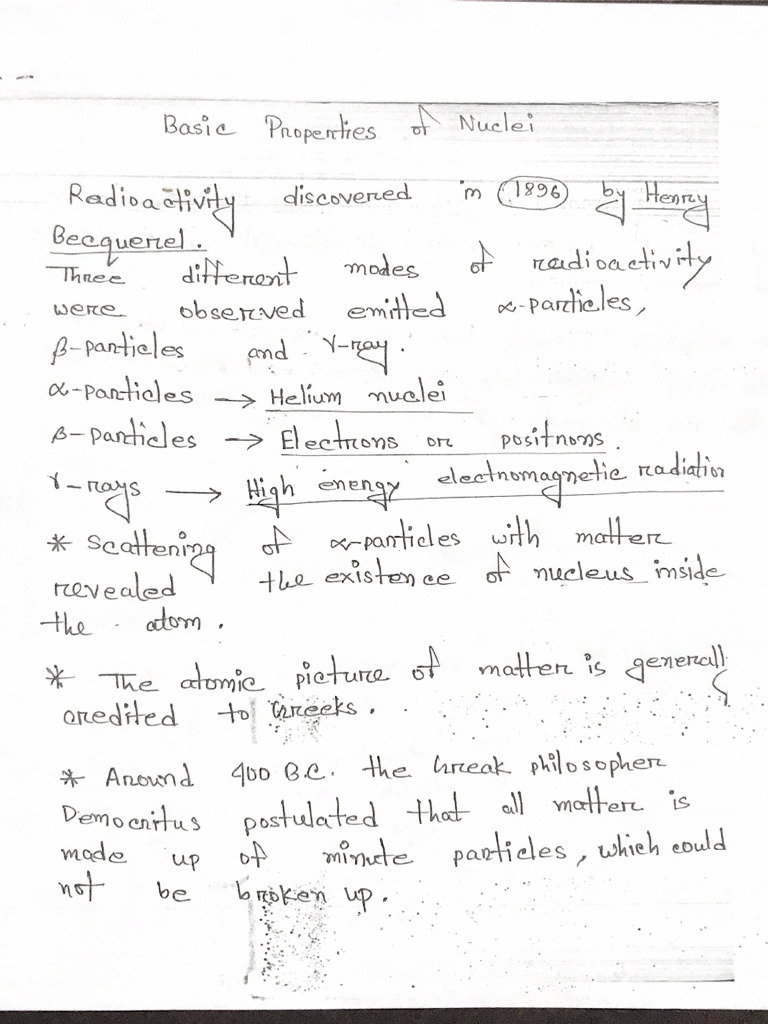 Basic Properties of Nuclei
Radioactivity discovered in 1896 by Henry
Becquerel.
Three different modes of radioactivity
were observed emitted α-particles,
β-particles and γ-ray.
α-particles → Helium nuclei
β-particles → Electrons or positrons.
γ-rays → High energy electromagnetic radiation
* Scattering of α-particles with matter
revealed the existence of nucleus inside
the atom.
* The atomic picture of matter is generally
credited to Greeks.
* Around 400 B.C. the Greak philosopher
Democritus postulated that all matter is
made up of minute particles, which could
not be broken up.